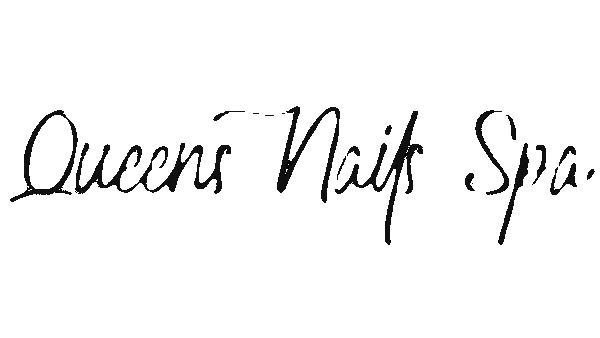 Queens Nails Spa.